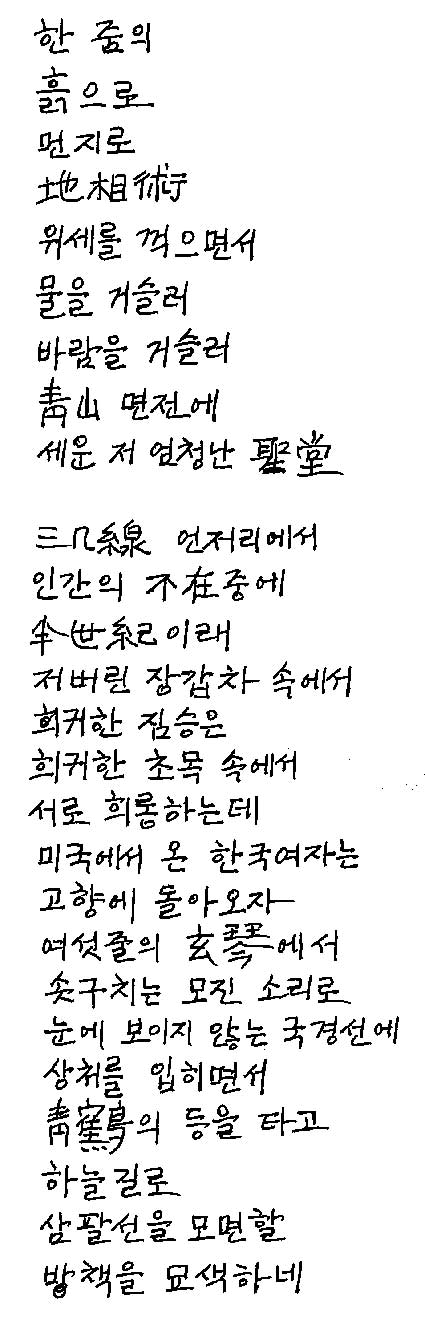 한 줌의
흙으로
먼지로
地相術
위세를 꺽으면서
물을 거슬러
바람을 거슬러
靑山 면전에
세운 저 엄청난 聖堂
三八線 언저리에서
인간의 不在중에
半世紀이래
저버린 장갑차 속에서
희귀한 짐승은
희귀한 초목 속에서
서로 희롱하는데
미국에서 온 한국여자는
고향에 돌아오자
여섯줄의 玄琴에서
솟구치는 모진 소리로
눈에 보이지 않는 국경선에
상처를 입히면서
靑鶴의 등을 타고
하늘길로
삼팔선을 모면할
방책을 모색하네